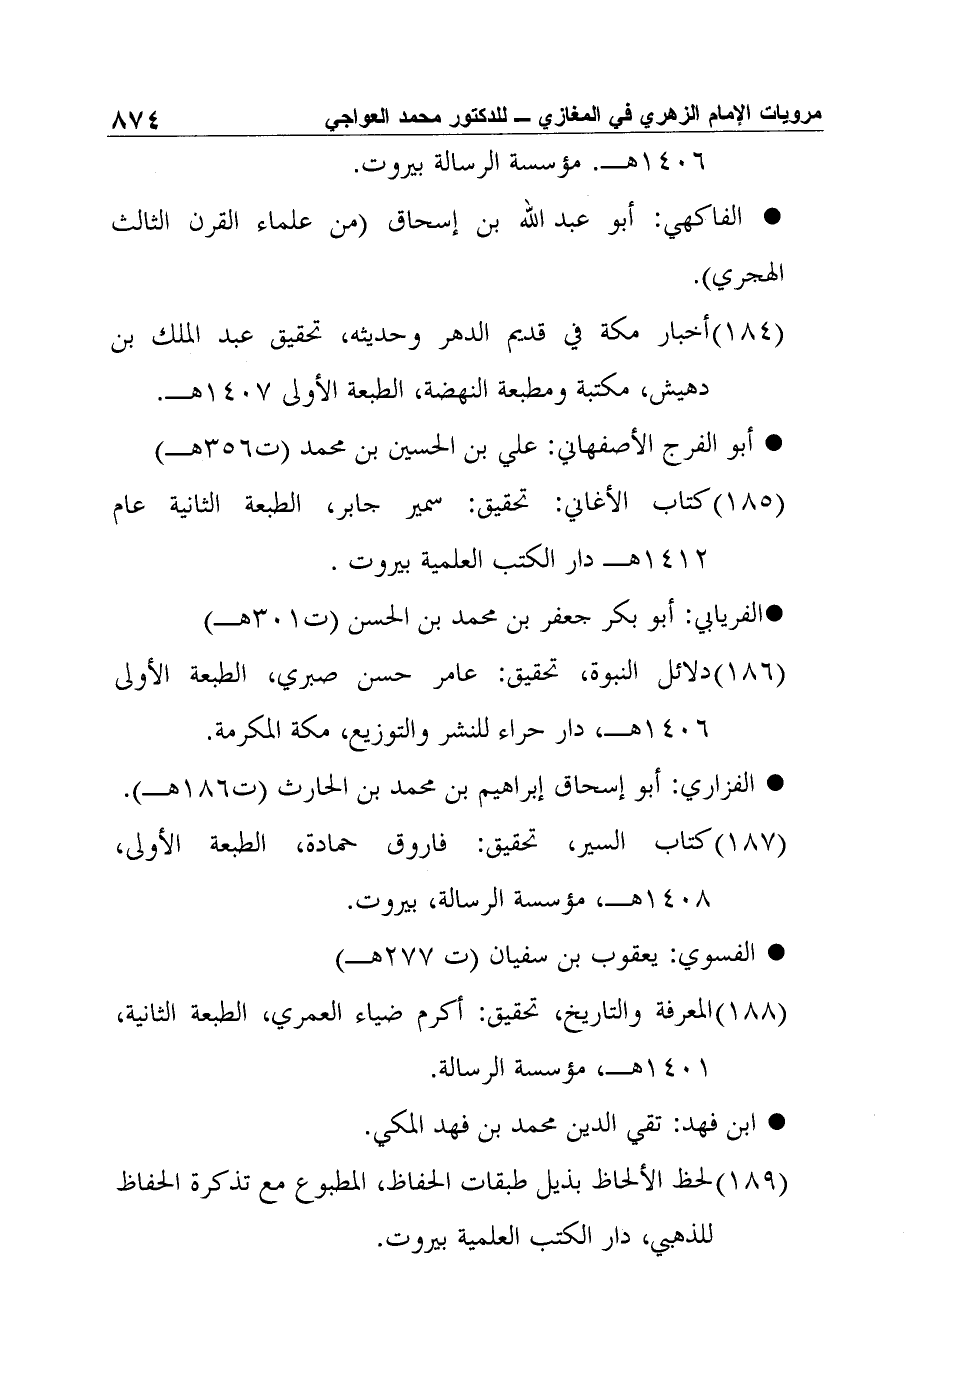 مرويات الإمام الزهري في المغازي ـ للدكتور محمد العواجي ٨٧٤
١٤٠٦هـ. مؤسسة الرسالة بيروت.
● الفاكهي: أبو عبد الله بن إسحاق (من علماء القرن الثالث
الهجري).
(١٨٤)أخبار مكة في قديم الدهر وحديثه، تحقيق عبد الملك بن
دهيش، مكتبة ومطبعة النهضة، الطبعة الأولى ١٤٠٧هـ.
● أبو الفرج الأصفهاني: علي بن الحسين بن محمد (ت٣٥٦هـ)
(١٨٥)كتاب الأغاني: تحقيق: سمير جابر، الطبعة الثانية عام
١٤١٢هـ دار الكتب العلمية بيروت .
●الفريابي: أبو بكر جعفر بن محمد بن الحسن (ت٣٠١هـ)
(١٨٦)دلائل النبوة، تحقيق: عامر حسن صبري، الطبعة الأولى
١٤٠٦هـ، دار حراء للنشر والتوزيع، مكة المكرمة.
● الفزاري: أبو إسحاق إبراهيم بن محمد بن الحارث (ت١٨٦هـ).
(١٨٧)كتاب السير، تحقيق: فاروق حمادة، الطبعة الأولى،
١٤٠٨هـ، مؤسسة الرسالة، بيروت.
● الفسوي: يعقوب بن سفيان (ت ٢٧٧هـ)
(١٨٨)المعرفة والتاريخ، تحقيق: أكرم ضياء العمري، الطبعة الثانية،
١٤٠١هـ، مؤسسة الرسالة.
● ابن فهد: تقي الدين محمد بن فهد المكي.
(١٨٩)لحظ الألحاظ بذيل طبقات الحفاظ، المطبوع مع تذكرة الحفاظ
للذهبي، دار الكتب العلمية بيروت.